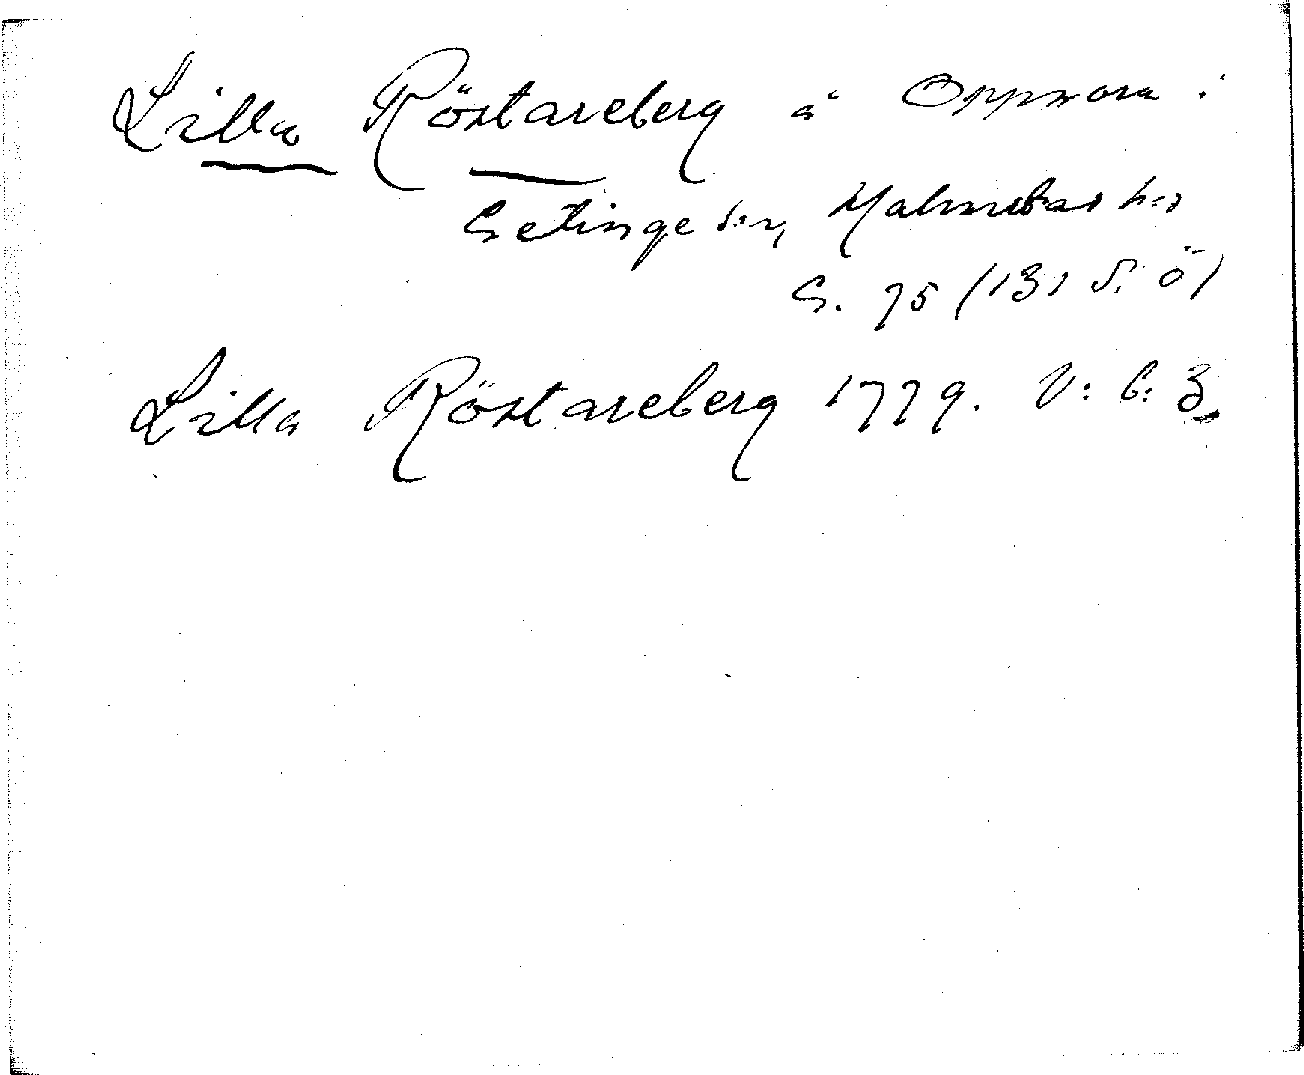 Lilla Röstareberg å Opphem i
Getinge sn, Halmstads hd
G. 75 (131 S. Ö)
Lilla Röstareberg 1779. V: b: 3.